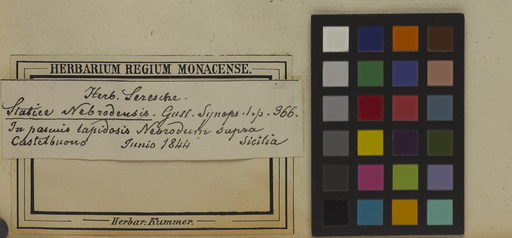 HERBARIUM REGIUM MONACENSE.
Herb. Seresche.
Statice Nebrodensis. Guss. Synops. 1. p. 366.
In pascuis lapidosis Nebrodum supra
Castelbuono Junio 1844 Sicilia
Herbar. Kummer.